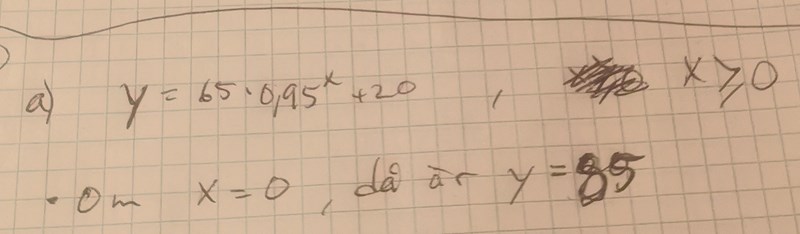 a) y = 65·0,95^x + 20 , x ≥ 0
• Om x = 0, då är y = 85